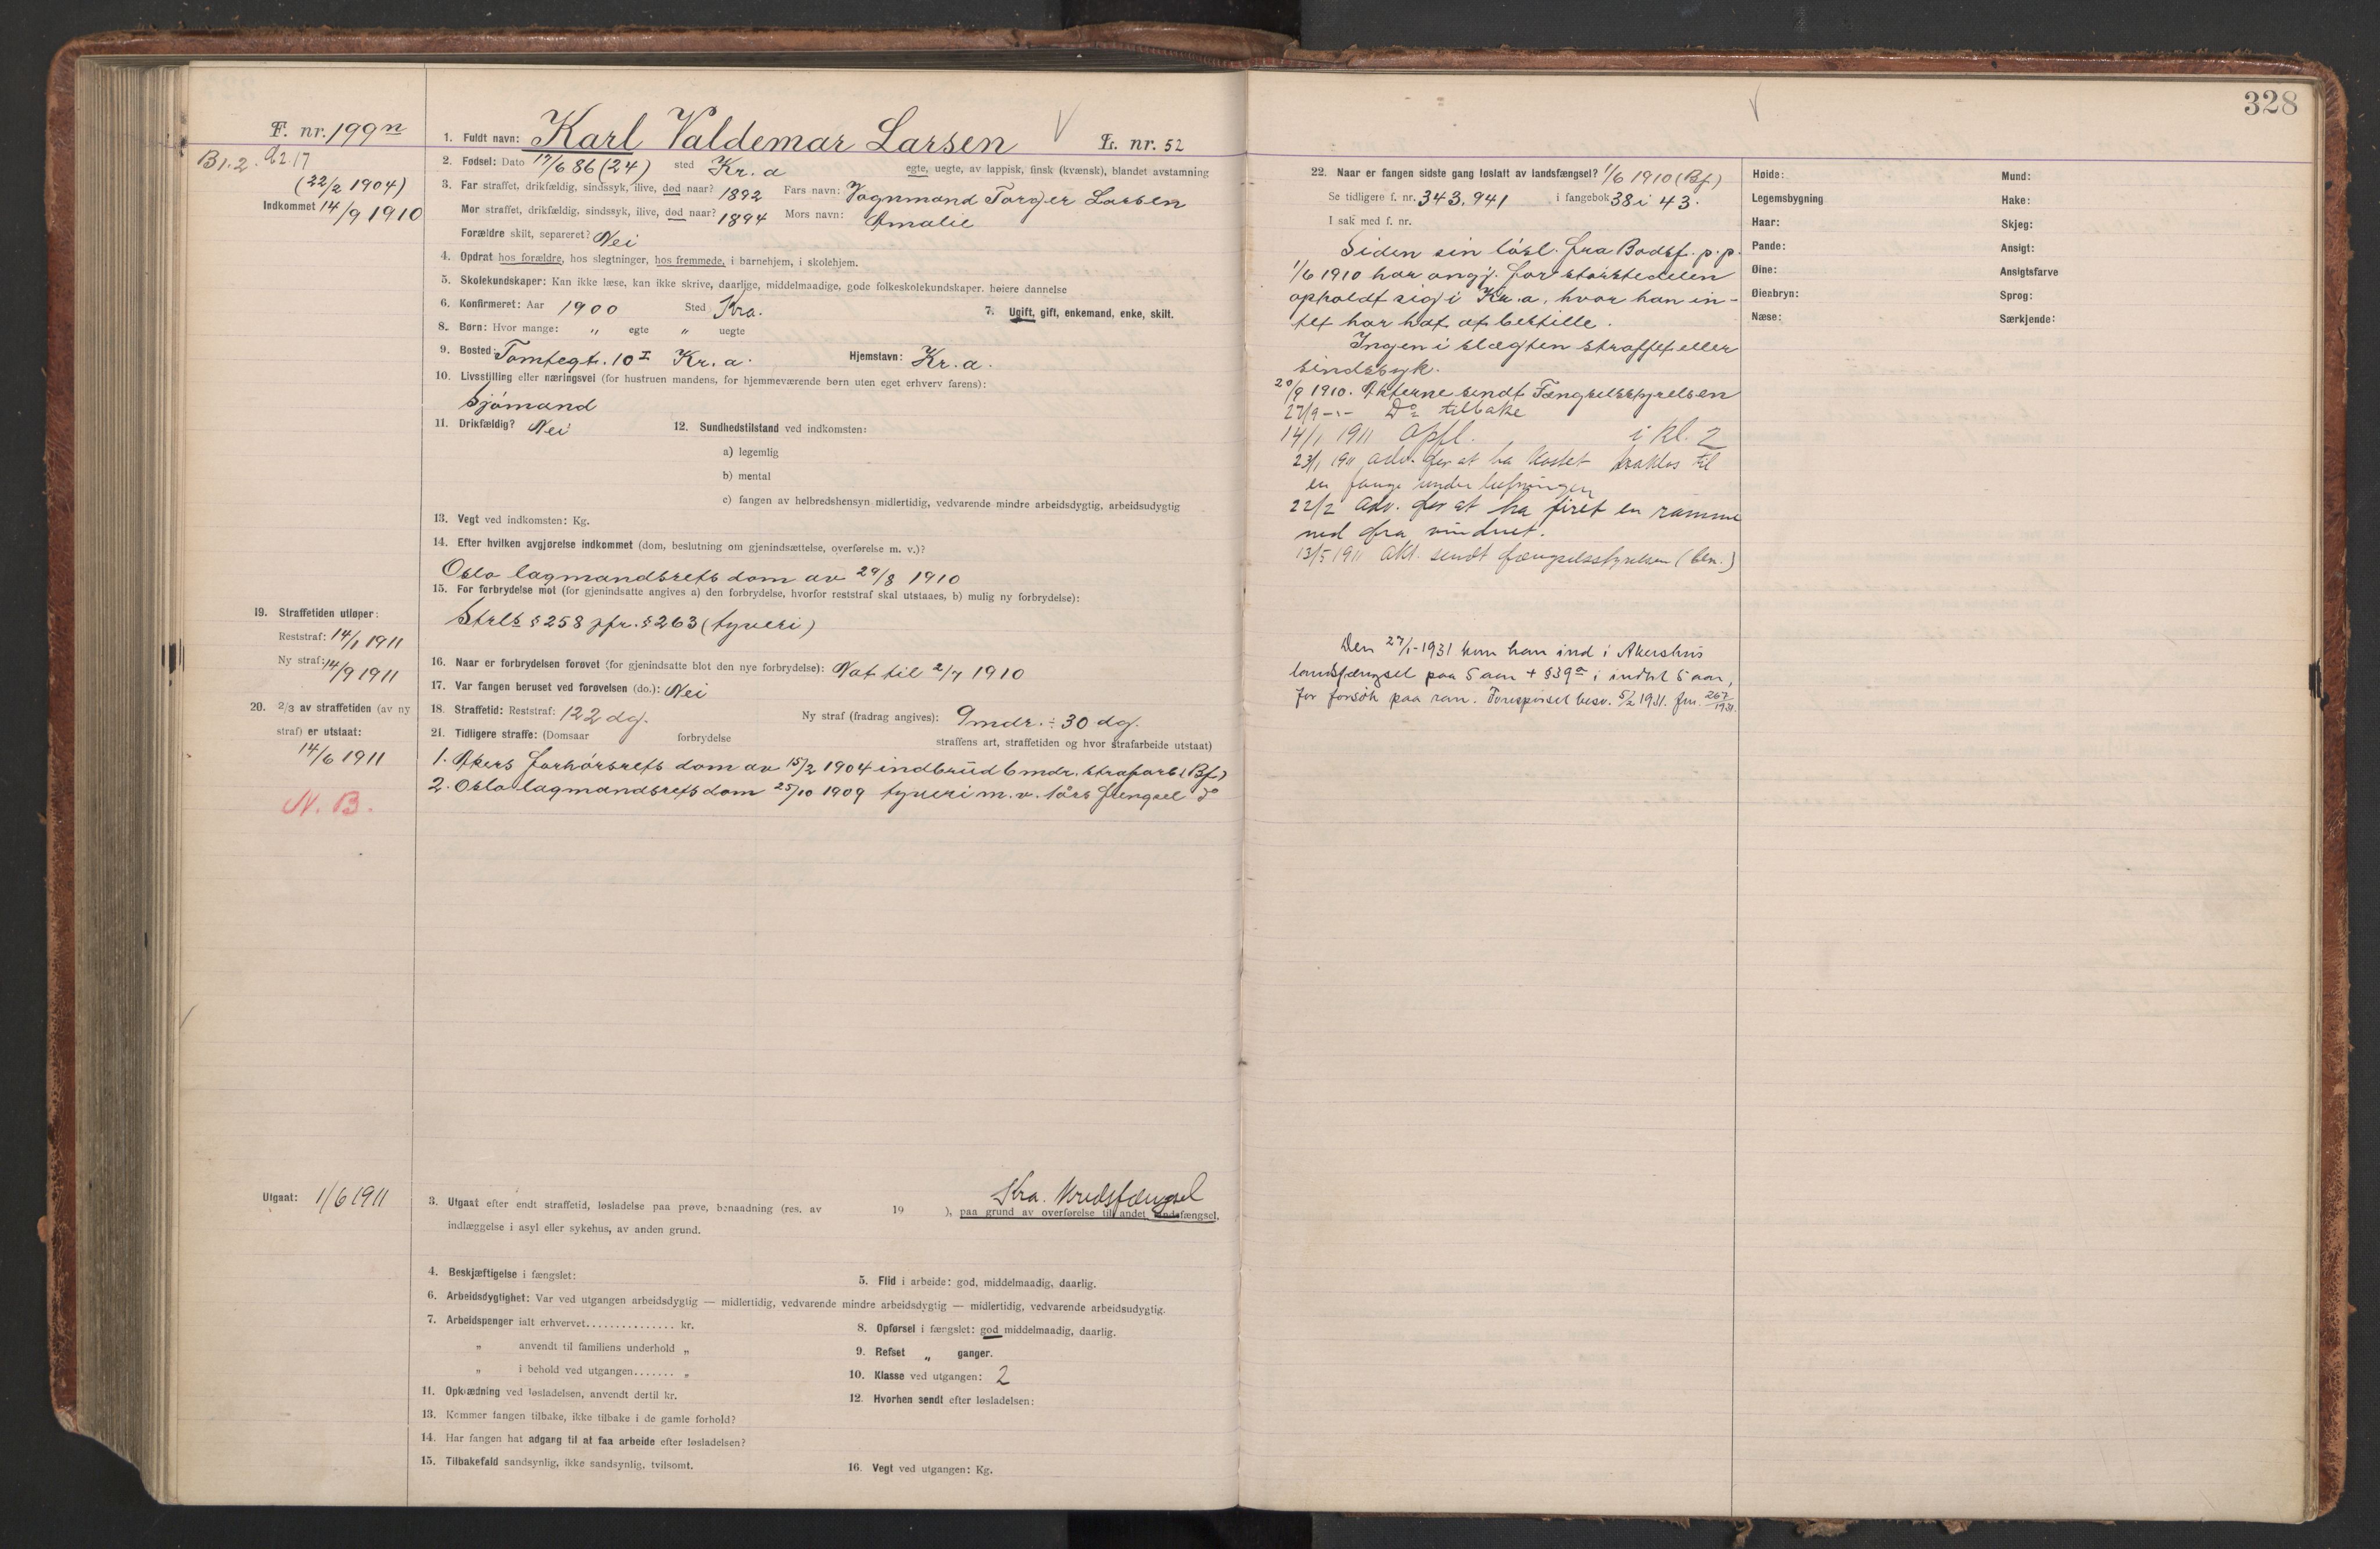 328
F. nr. 199n
B1.2. a2.17
(22/2 1904)
Indkommet 14/9 1910
1. Fuldt navn: Karl Valdemar Larsen L. nr. 52
2. Fødsel: Dato 17/6 86 (24) sted Kr.a egte, uegte, av lappisk, finsk (kvænsk), blandet avstamning
3. Far straffet, drikfældig, sindssyk, ilive, død naar? 1892 Fars navn: Vognmand Torger Larsen
Mor straffet, drikfældig, sindssyk, ilive, død naar? 1894 Mors navn: Amalie
Forældre skilt, separeret? Nei
4. Opdrat hos forældre, hos slegtninger, hos fremmede, i barnehjem, i skolehjem.
5. Skolekundskaper: Kan ikke læse, kan ikke skrive, daarlige, middelmaadige, gode folkeskolekundskaper. høiere dannelse
6. Konfirmeret: Aar 1900 Sted Kra. 7. Ugift, gift, enkemand, enke, skilt.
8. Børn: Hvor mange: " egte " uegte
9. Bosted: Tomtegt. 10 I Kr.a. Hjemstavn: Kr.a.
10. Livsstilling eller næringsvei (for hustruen mandens, for hjemmeværende børn uten eget erhverv farens):
Sjömand
11. Drikfældig? Nei 12. Sundhedstilstand ved indkomsten:
a) legemlig
b) mental
c) fangen av helbredshensyn midlertidig, vedvarende mindre arbeidsdygtig, arbeidsudygtig
13. Vegt ved indkomsten: Kg.
14. Efter hvilken avgjørelse indkommet (dom, beslutning om gjenindsættelse, overførelse m. v.)?
Oslo lagmandsrets dom av 29/8 1910
15. For forbrydelse mot (for gjenindsatte angives a) den forbrydelse, hvorfor reststraf skal utstaaes, b) mulig ny forbrydelse):
Strls § 258 jfr. § 263 (tyveri)
16. Naar er forbrydelsen forøvet (for gjenindsatte blot den nye forbrydelse): Nat til 2/7 1910
17. Var fangen beruset ved forøvelsen (do.): Nei
18. Straffetid: Reststraf: 122 dg. Ny straf (fradrag angives): 9 mdr. ÷ 30 dg.
19. Straffetiden utløper:
Reststraf: 14/1 1911
Ny straf: 14/9 1911
20. 2/3 av straffetiden (av ny
straf) er utstaat:
14/6 1911
N. B.
21. Tidligere straffe: (Domsaar forbrydelse straffens art, straffetiden og hvor strafarbeide utstaat)
1. Akers forhörsrets dom av 15/2 1904 indbrud 6 mdr. strafarb. (Bf.)
2. Oslo lagmandsrets dom 25/10 1909 tyveri m.v. 1 års fængsel do
Utgaat: 1/6 1911
3. Utgaat efter endt straffetid, løsladelse paa prøve, benaadning (res. av 19 ), paa grund av overførelse til andet landsfængsel, Kra. Kredsfængsel
indlæggelse i asyl eller sykehus, av anden grund.
4. Beskjæftigelse i fængslet: 5. Flid i arbeide: god, middelmaadig, daarlig.
6. Arbeidsdygtighet: Var ved utgangen arbeidsdygtig — midlertidig, vedvarende mindre arbeidsdygtig — midlertidig, vedvarende arbeidsudygtig.
7. Arbeidspenger ialt erhvervet............... kr. 8. Opførsel i fængslet: god middelmaadig, daarlig.
" anvendt til familiens underhold " 9. Refset " ganger.
" i behold ved utgangen....... " 10. Klasse ved utgangen: 2
11. Opklædning ved løsladelsen, anvendt dertil kr. 12. Hvorhen sendt efter løsladelsen:
13. Kommer fangen tilbake, ikke tilbake i de gamle forhold?
14. Har fangen hat adgang til at faa arbeide efter løsladelsen?
15. Tilbakefald sandsynlig, ikke sandsynlig, tvilsomt. 16. Vegt ved utgangen: Kg.
22. Naar er fangen sidste gang løslatt av landsfængsel? 1/6 1910 (Bf.)
Se tidligere f. nr. 343. 941 i fangebok 38 i 43.
I sak med f. nr.
Siden sin lösl. fra Bodsf. p.p.
1/6 1910 har angj. for störstedelen
opholdt sig i Kr.a, hvor han in-
tet har hat at bestille.
Ingen i slægten straffet eller
sindssyk.
20/9 1910. Akterne sendt Fængselsstyrelsen
27/9 -"- Do tilbake
14/1 1911 opfl. i kl. 2
23/1 1911 adv. for at ha kastet til
en fange under luftningen
22/2 adv. for at ha firet en ramme
ned fra vinduet.
13/5 1911 akt. sendt fængselsstyrelsen (ben.)
Den 27/1-1931 kom han ind i Akershus
landsfængsel paa 5 aar + § 39 a i indtil 5 aar,
for forsök paa ran. Forespörsel besv. 5/2 1931. jnr. 267/1931.
Høide: Mund:
Legemsbygning Hake:
Haar: Skjeg:
Pande: Ansigt:
Øine: Ansigtsfarve
Øienbryn: Sprog:
Næse: Særkjende: